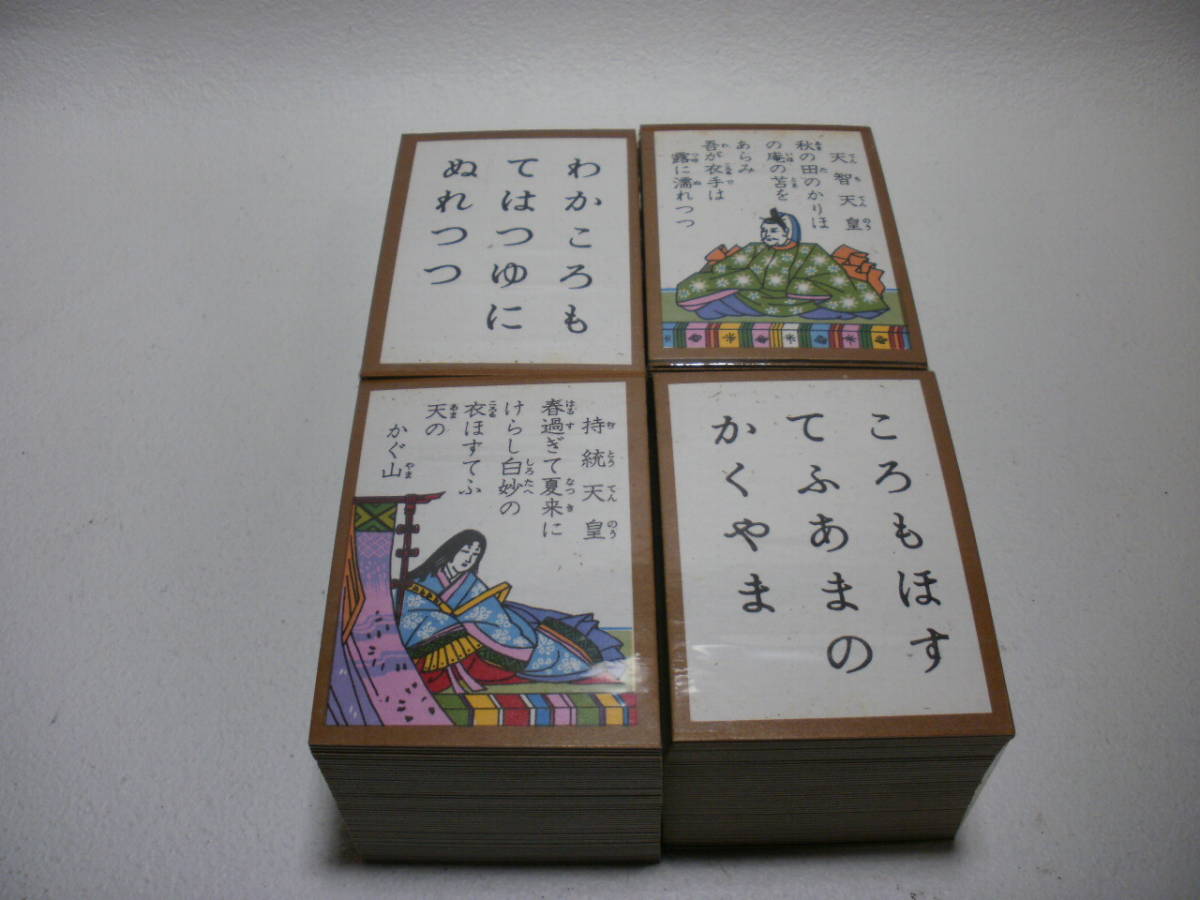 わかころも
てはつゆに
ぬれつつ
天智天皇
てんちてんのう
秋の田のかりほ
の庵の苫を
あらみ
吾が衣手は
露に濡れつつ
持統天皇
じとうてんのう
春過ぎて夏来に
けらし白妙の
衣ほすてふ
天の
かぐ山
ころもほす
てふあまの
かくやま